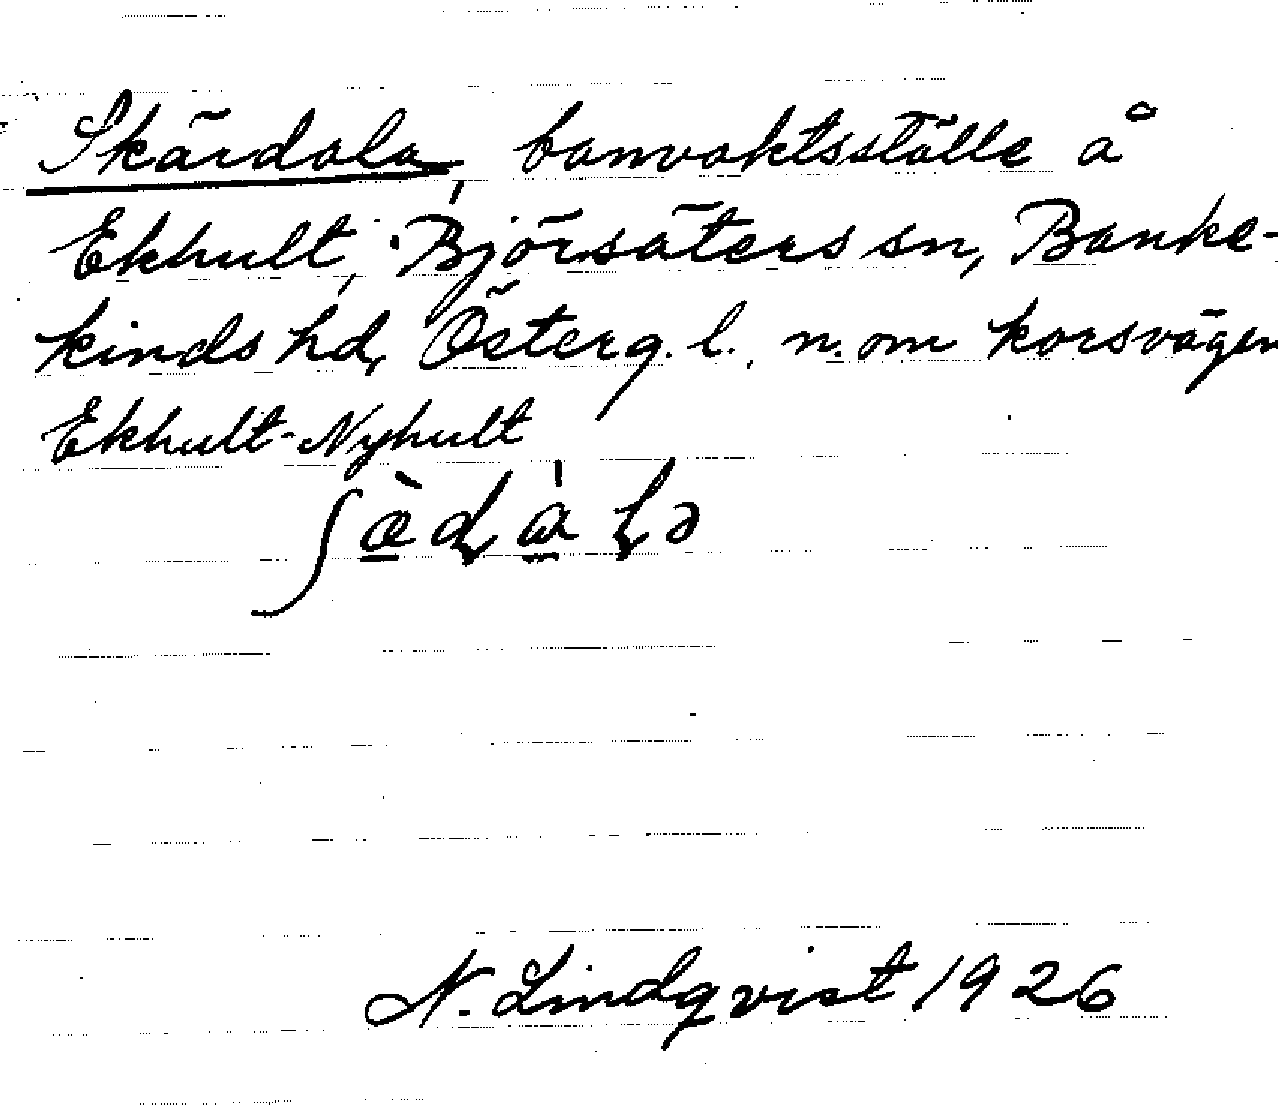 Skärdala, banvaktsställe å
Ekhult, Björsäters sn, Banke-
kinds hd, Österg. l., n. om korsvägen
Ekhult-Nyhult
N. Lindqvist 1926